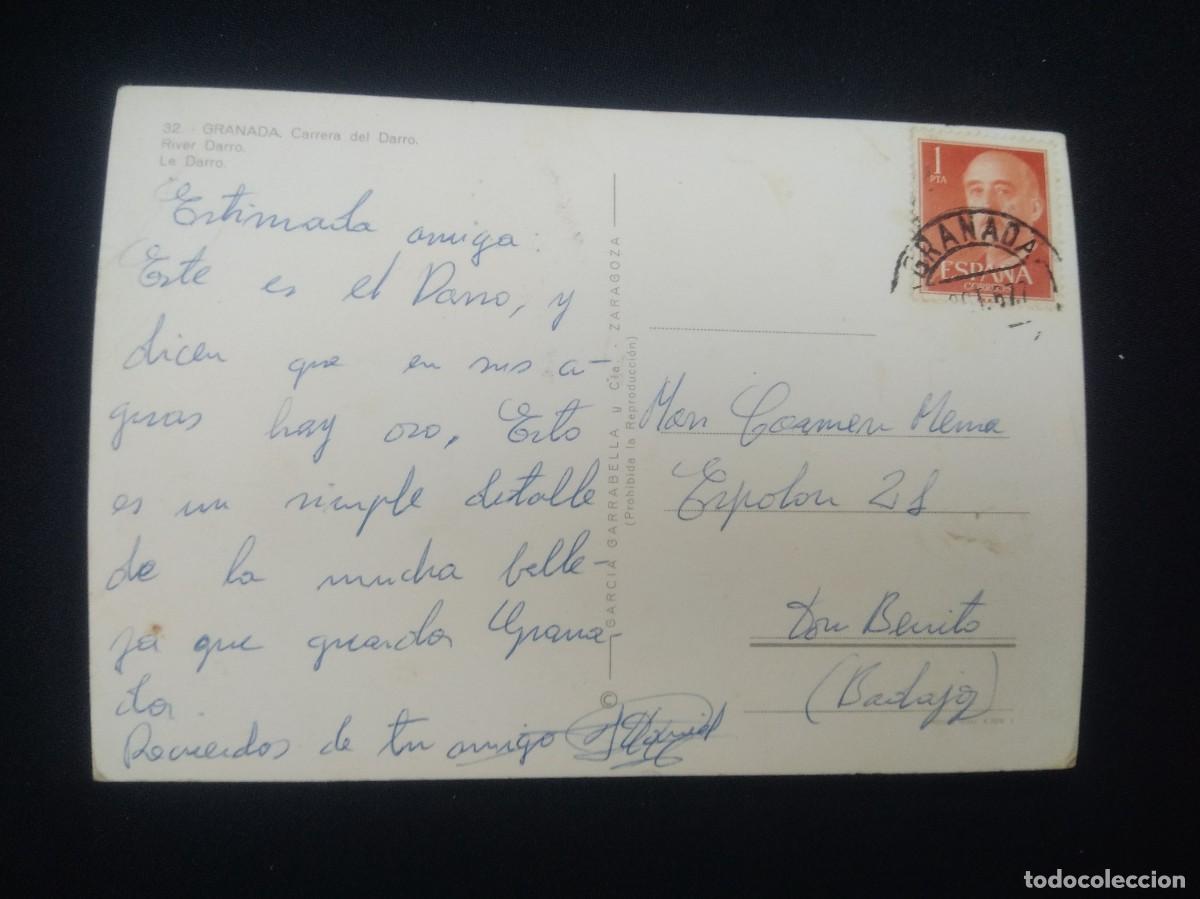 32. - GRANADA. Carrera del Darro.
River Darro.
Le Darro.
Estimada amiga:
Este es el Darro, y
dicen que en sus a-
guas hay oro, Esto
es un simple detalle
de la mucha belle-
za que guarda Grana-
da.
Recuerdos de tu amigo
© GARCIA GARRABELLA y Cía. - ZARAGOZA
(Prohibida la Reproducción)
1
PTA
ESPAÑA
CORREOS
GRANADA
Mari Carmen Mena
Espolon
Don Benito
(Badajoz)
todocoleccion